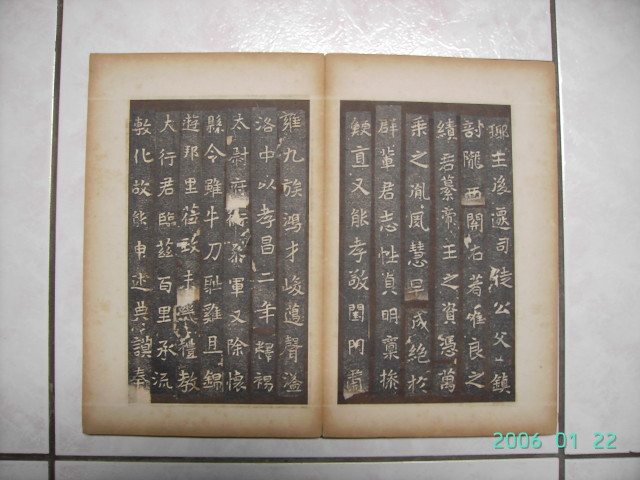 主後遷司徒公父鎮
討隴西開右著唯良之
績君纂帝王之資憑萬
乘之胤夙慧早成絕於
群輩君志性貞明稟操
鯁直又能孝敬閨門肅
雍九族鴻才峻邁聲溢
洛中以孝昌二年釋褐
太尉府行參軍又除懷
縣令雖牛刀耻雞且錦
遊邦里莅政未禮教
大行君臨茲百里承流
敷化故能申述典謨奉
2006 01 22